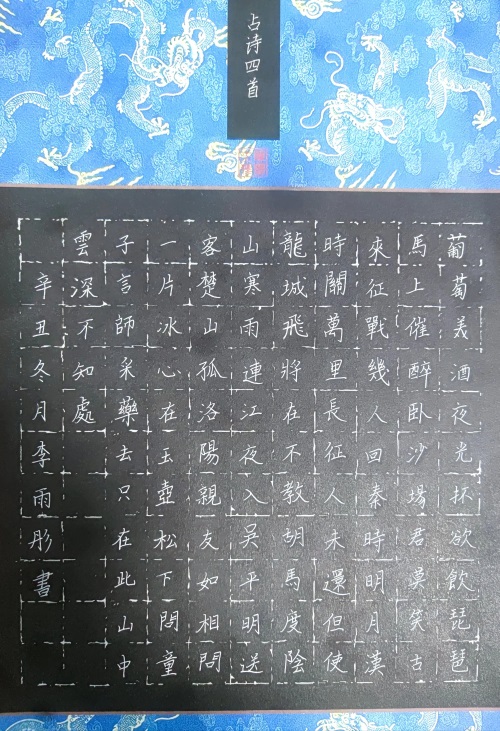 古诗四首
葡萄美酒夜光杯欲飲琵琶
馬上催醉卧沙場君莫笑古
來征戰幾人回秦時明月漢
時關萬里長征人未還但使
龍城飛將在不教胡馬度陰
山寒雨連江夜入吳平明送
客楚山孤洛陽親友如相問
一片冰心在玉壺松下問童
子言師采藥去只在此山中
雲深不知處
辛丑冬月李雨彤書